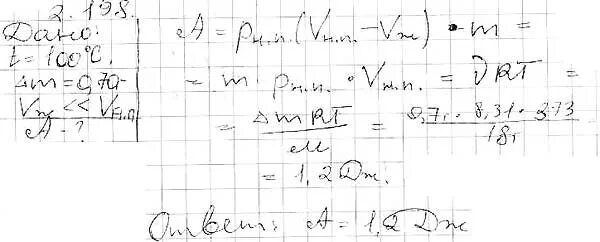 2.198.
Дано:
t = 100°C.
Δm = 0,70г
Vж << Vн.п.
A - ?
A = pн.п.(Vн.п. - Vж) · m =
= m pн.п. · Vн.п. = νRT =
= ΔmRT / M = 0,7г · 8,31 · 373 / 18г
= 1,2 Дж.
Ответ: A = 1,2 Дж